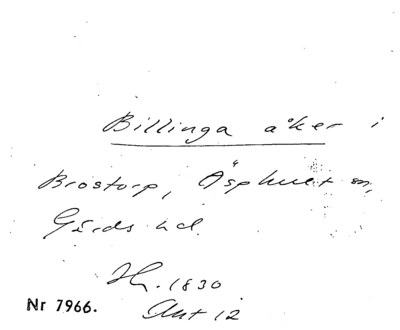 Billinga åker i
Brostorp, Äsphult sn,
Gärds hd.
Hr. 1830
Akt 12
Nr 7966.